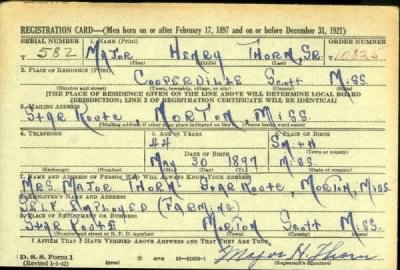 REGISTRATION CARD—(Men born on or after February 17, 1897 and on or before December 31, 1921)
SERIAL NUMBER 1. NAME (Print) ORDER NUMBER
T 582 MAJOR HENRY THORN, SR.
(First) (Middle) (Last)
2. PLACE OF RESIDENCE (Print)
COOPERVILLE SCOTT MISS.
(Number and street) (Town, township, village, or city) (County) (State)
[THE PLACE OF RESIDENCE GIVEN ON THE LINE ABOVE WILL DETERMINE LOCAL BOARD
JURISDICTION; LINE 2 OF REGISTRATION CERTIFICATE WILL BE IDENTICAL]
3. MAILING ADDRESS
STAR ROUTE, MORTON MISS.
[Mailing address if other than place indicated on line 2. If same insert word same]
4. TELEPHONE 5. AGE IN YEARS 6. PLACE OF BIRTH
44 SMITH
(Town or county)
DATE OF BIRTH
MAY 30 1897 MISS.
(Mo.) (Day) (Yr.) (State or country)
7. NAME AND ADDRESS OF PERSON WHO WILL ALWAYS KNOW YOUR ADDRESS
MRS. MAJOR THORN STAR ROUTE, MORTON, MISS.
8. EMPLOYER'S NAME AND ADDRESS
SELF EMPLOYED (FARMING)
9. PLACE OF EMPLOYMENT OR BUSINESS
STAR ROUTE MORTON SCOTT MISS
(Number and street or R. F. D. number) (Town) (County) (State)
I AFFIRM THAT I HAVE VERIFIED ABOVE ANSWERS AND THAT THEY ARE TRUE.
D. S. S. Form 1 GPO Major H. Thorn
(Revised 1-1-42) (over) (Registrant's signature)